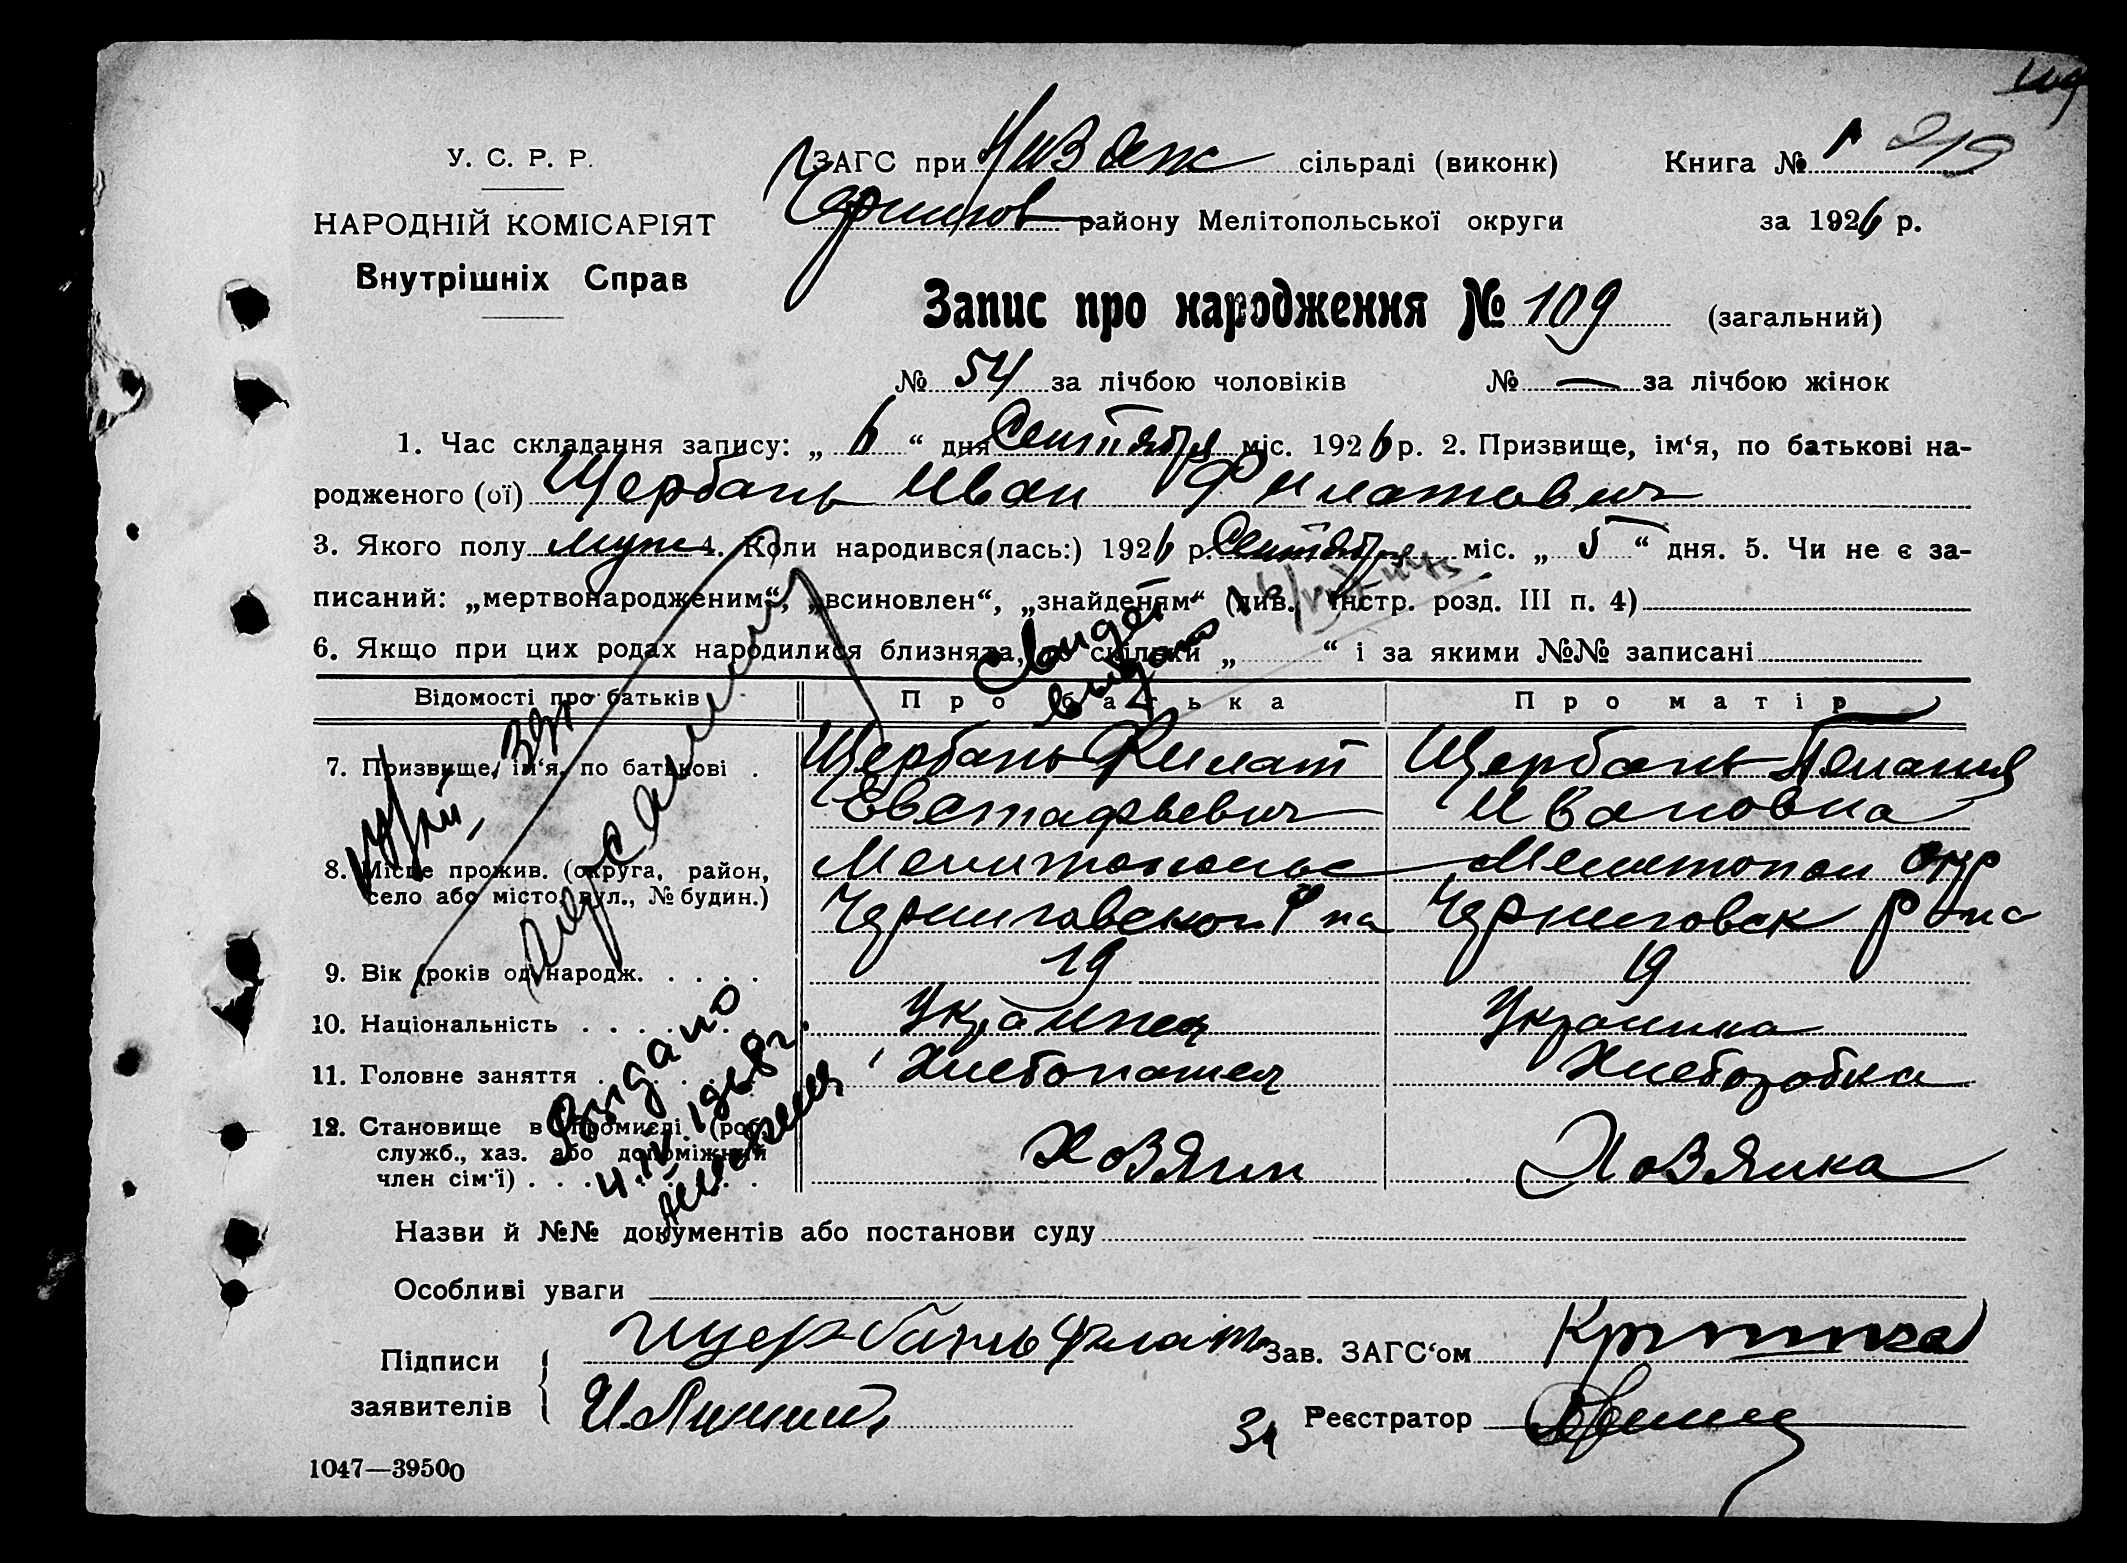 109
У. С. Р. Р.
НАРОДНІЙ КОМІСАРІЯТ
Внутрішніх Справ
ЗАГС при сільраді (виконк)
Чернигов району Мелітопольської округи
Книга № 1 219
за 1926 р.
Запис про народження № 109 (загальний)
№ 54 за лічбою чоловіків № — за лічбою жінок
1. Час складання запису: „ 6 “ дня Сентября міс. 1926 р. 2. Призвище, ім‘я, по батькові на-
родженого (ої) Щербань Иван Филатович
3. Якого полу муж 4. Коли народився(лась:) 1926 р. Сентября міс. „ 5 “ дня. 5. Чи не є за-
писаний: „мертвонародженим“, „всиновлен“, „знайденям“ (див. інстр. розд. III п. 4)
6. Якщо при цих родах народилися близнята, то скільки „ “ і за якими №№ записані
Свидет
выдано
Відомості про батьків Про батька Про матір
7. Призвище, ім‘я, по батькові . Щербань Филат Щербань Пелагия
Евстафьевич Ивановна
8. Місце прожив. (округа, район, Мелитопольс Мелитопол окр
село або місто, вул., № будин.) Черниговского р на Черниговск р она
9. Вік (років од народж. . . . . 19 19
10. Національність . . . . . . Украинец Украинка
11. Головне заняття . . . . . Хлебопашец Хлеборобка
12. Становище в промислі (роб. служб., хаз. або допоміжний член сім‘ї) . . . . . . . Хозяин Хозяйка
Выдано
4.IV.1968г.
Назви й №№ документів або постанови суду
Особливі уваги
Підписи заявителів
Щербань Филат
Зав. ЗАГС‘ом
За Реєстратор
1047—39500